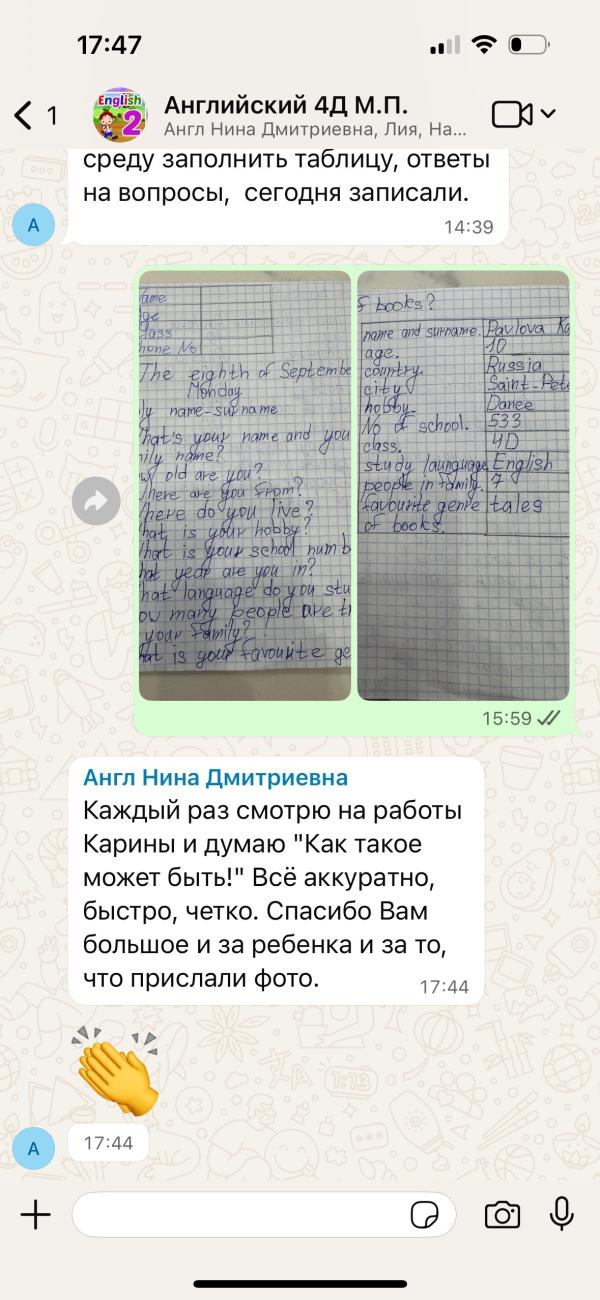 17:47
1
English
2
Английский 4Д М.П.
Англ Нина Дмитриевна, Лия, На...
среду заполнить таблицу, ответы
на вопросы, сегодня записали.
14:39
А
ame
ge
lass
hone No
The eighth of Septembe
Monday
y name-surname
hat's your name and you
ily name?
w old are you?
here are you from?
here do you live?
hat is your hobby?
hat is your school numb
hat year are you in?
hat language do you stu
ow many people are t
your family?
hat is your favourite ge
f books?
name and surname. Pavlova Ka
age. 10
country. Russia
city. Saint-Pete
hobby. Dance
No of school. 533
class. 4D
study launguage English
people in family. 7
favourite genre tales
of books.
15:59
Англ Нина Дмитриевна
Каждый раз смотрю на работы
Карины и думаю "Как такое
может быть!" Всё аккуратно,
быстро, четко. Спасибо Вам
большое и за ребенка и за то,
что прислали фото.
17:44
А
17:44